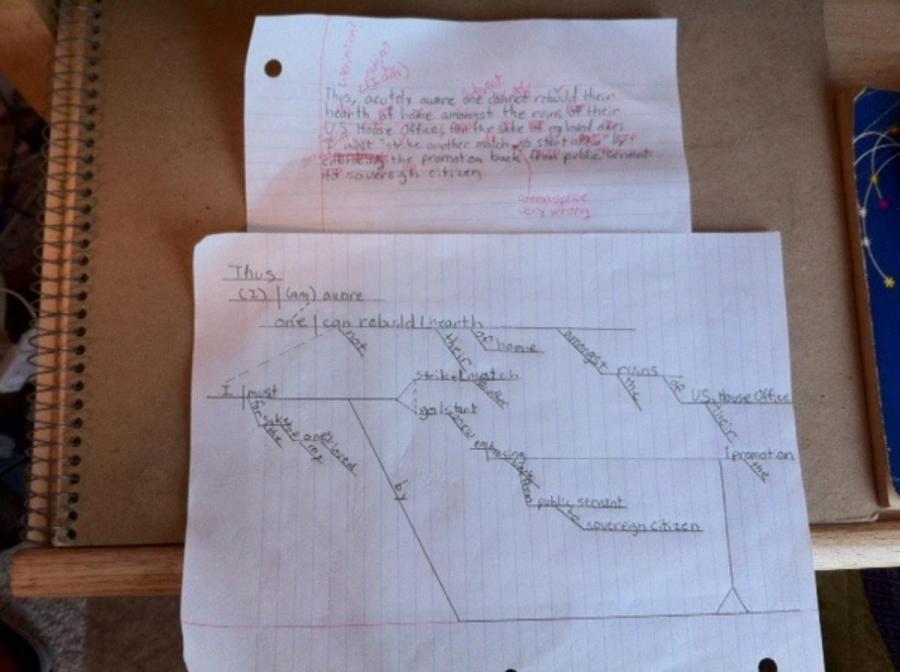 Thus, acutely aware one cannot rebuild their
hearth of home amongst the ruins of their
U.S. House Office, for the sake of my loved ones
I must "strike another match, go start anew" by
embracing the promotion back from public servant
to sovereign citizen
very wrong
Thus
(I) (am) aware
one can rebuild hearth
not
their
of
home
amongst
ruins
the
of
U.S. House Office
their
strike match
another
I must
go start
anew
for
sake
the
ones
my
loved
embracing
back
from
promotion
the
by
public servant
to
sovereign citizen